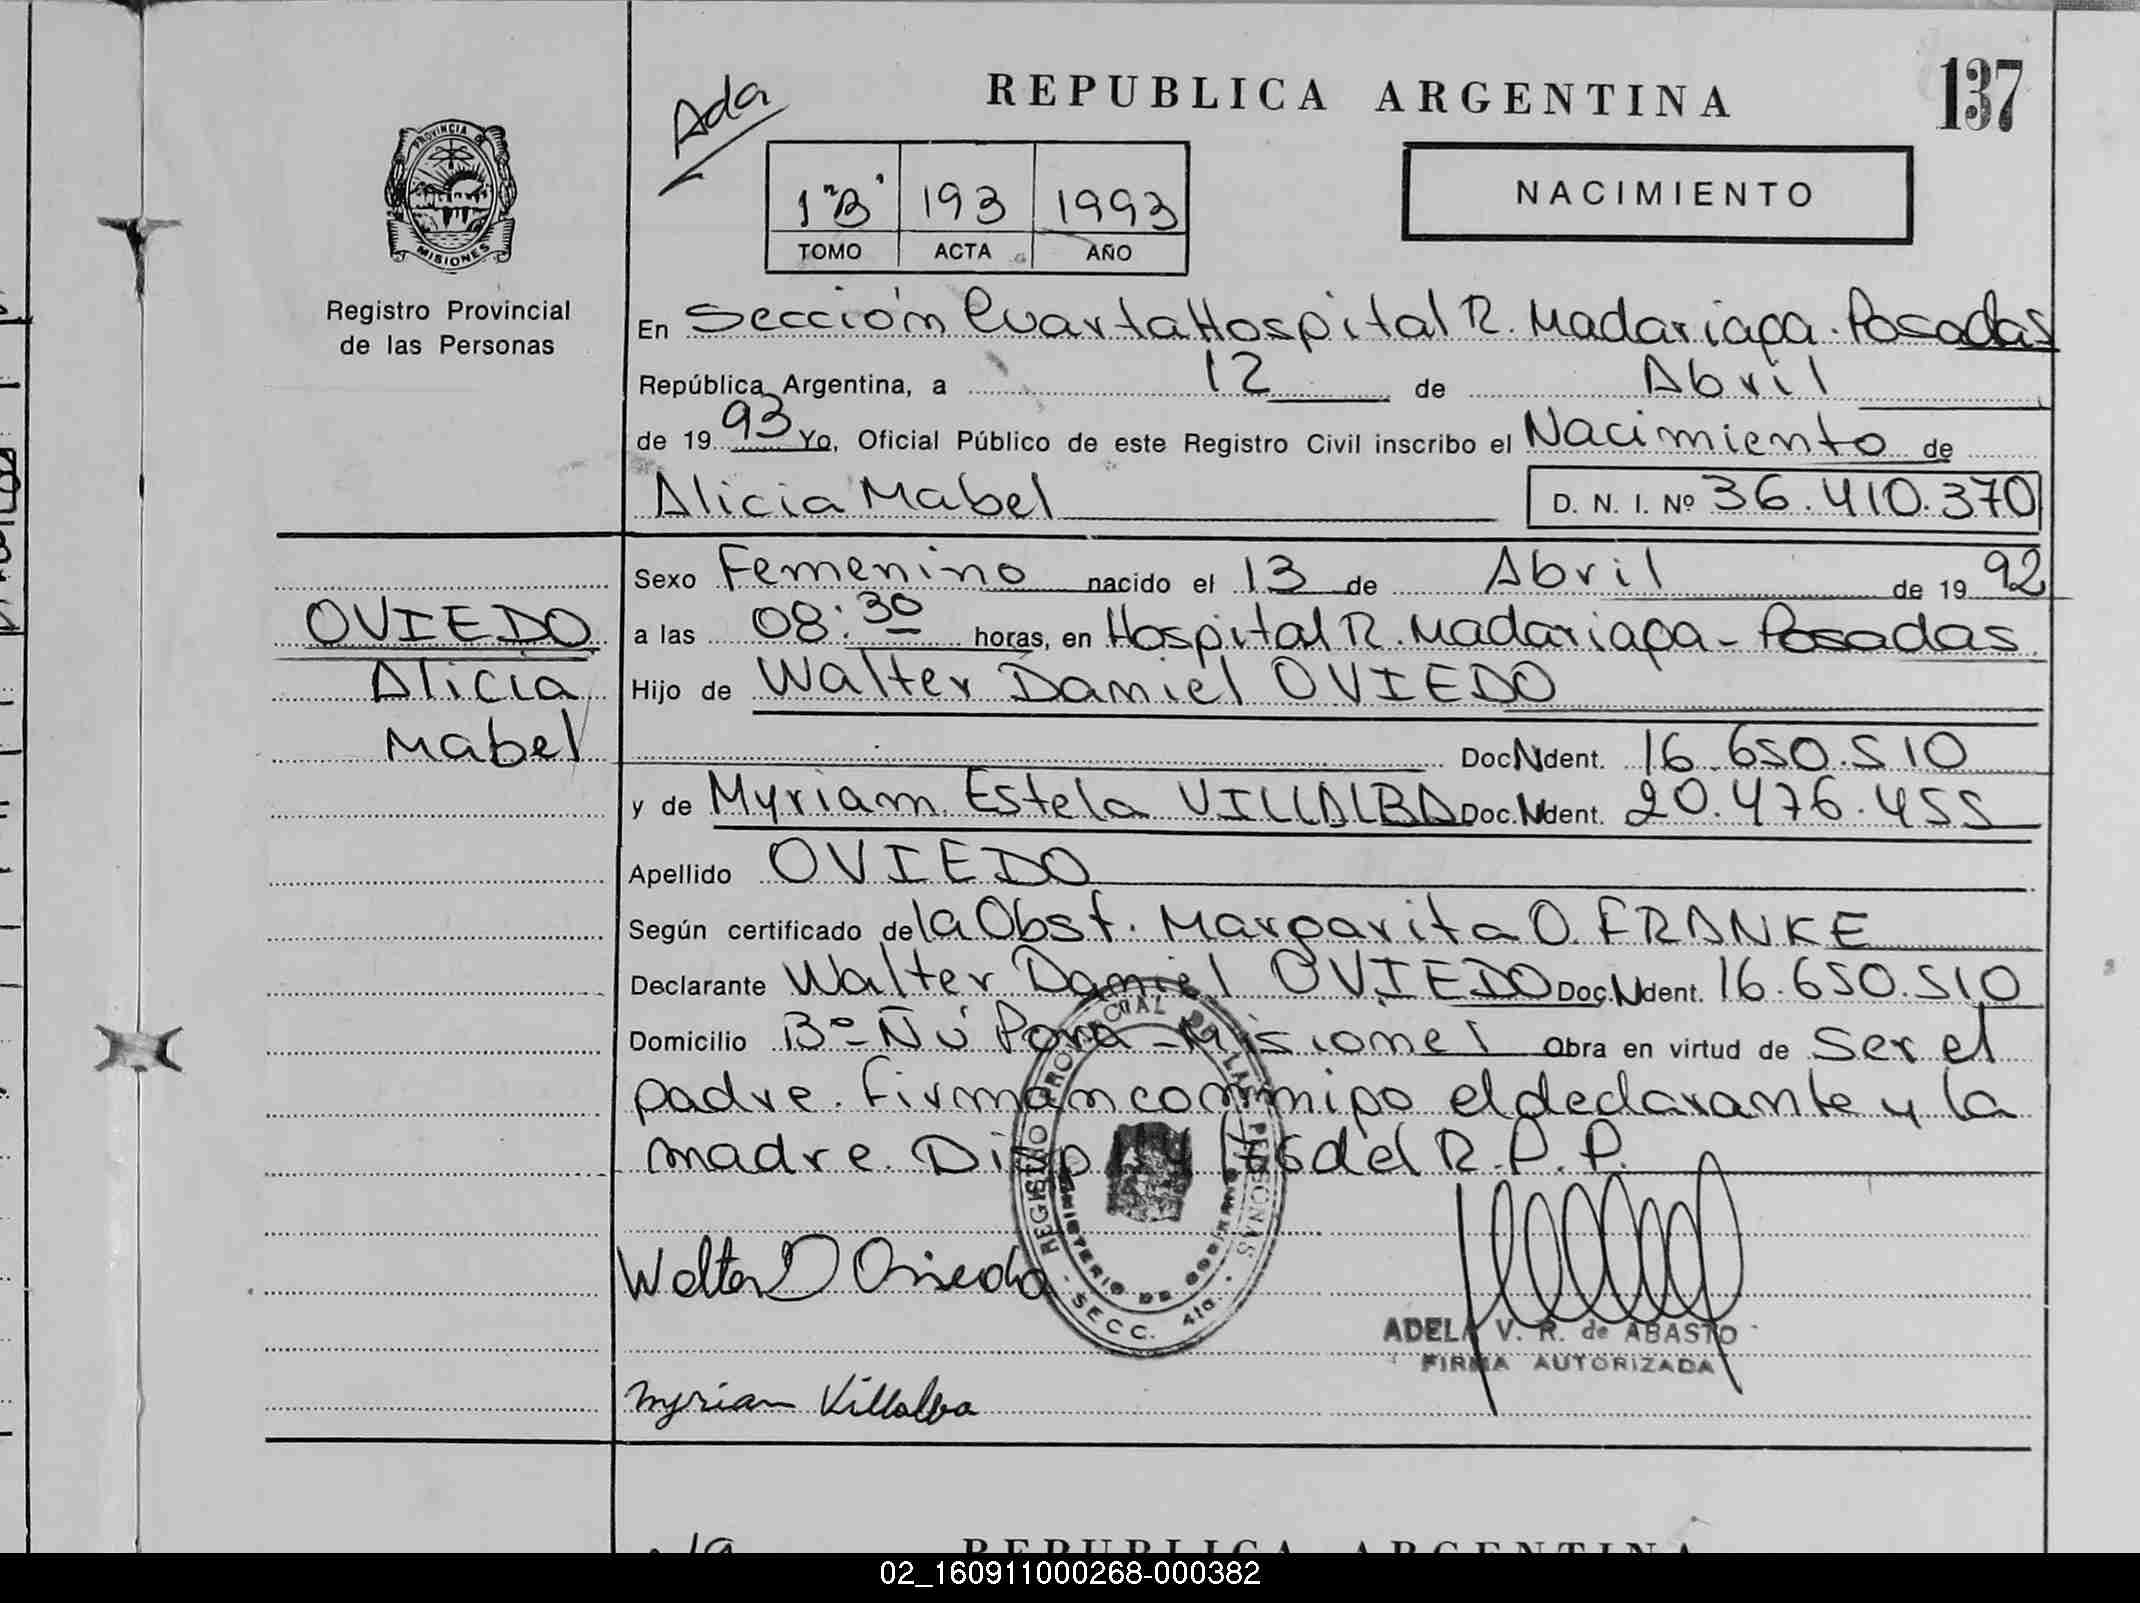 137
Ada
REPUBLICA ARGENTINA
PROVINCIA DE MISIONES
1 "B" 193 1993
TOMO ACTA AÑO
NACIMIENTO
Registro Provincial
de las Personas
En Sección Cuarta Hospital R. Madariaga. Posadas
República Argentina, a 12 de Abril
de 19 93 Yo, Oficial Público de este Registro Civil inscribo el Nacimiento de
Alicia Mabel D. N. I. Nº 36.410.370
Sexo Femenino nacido el 13 de Abril de 19 92
OVIEDO
Alicia
Mabel
a las 08:30 horas, en Hospital R. Madariaga - Posadas
Hijo de Walter Daniel OVIEDO
Doc N Ident. 16.650.510
y de Myriam Estela VILLALBA Doc. N Ident. 20.476.455
Apellido OVIEDO
Según certificado de la Obst. Margarita O. FRANKE
Declarante Walter Daniel OVIEDO Doc. N Ident. 16.650.510
Domicilio Bº Ñú Porá - Misiones Obra en virtud de ser el
padre. Firman conmigo el declarante y la
madre. Disp del R.P.P.
REGISTRO PROVINCIAL DE LAS PERSONAS
MINISTERIO DE GOBIERNO
SECC. 4ta.
Walter D Oviedo
ADELA V. R. de ABASTO
FIRMA AUTORIZADA
Myriam Villalba
REPUBLICA ARGENTINA
02_160911000268-000382